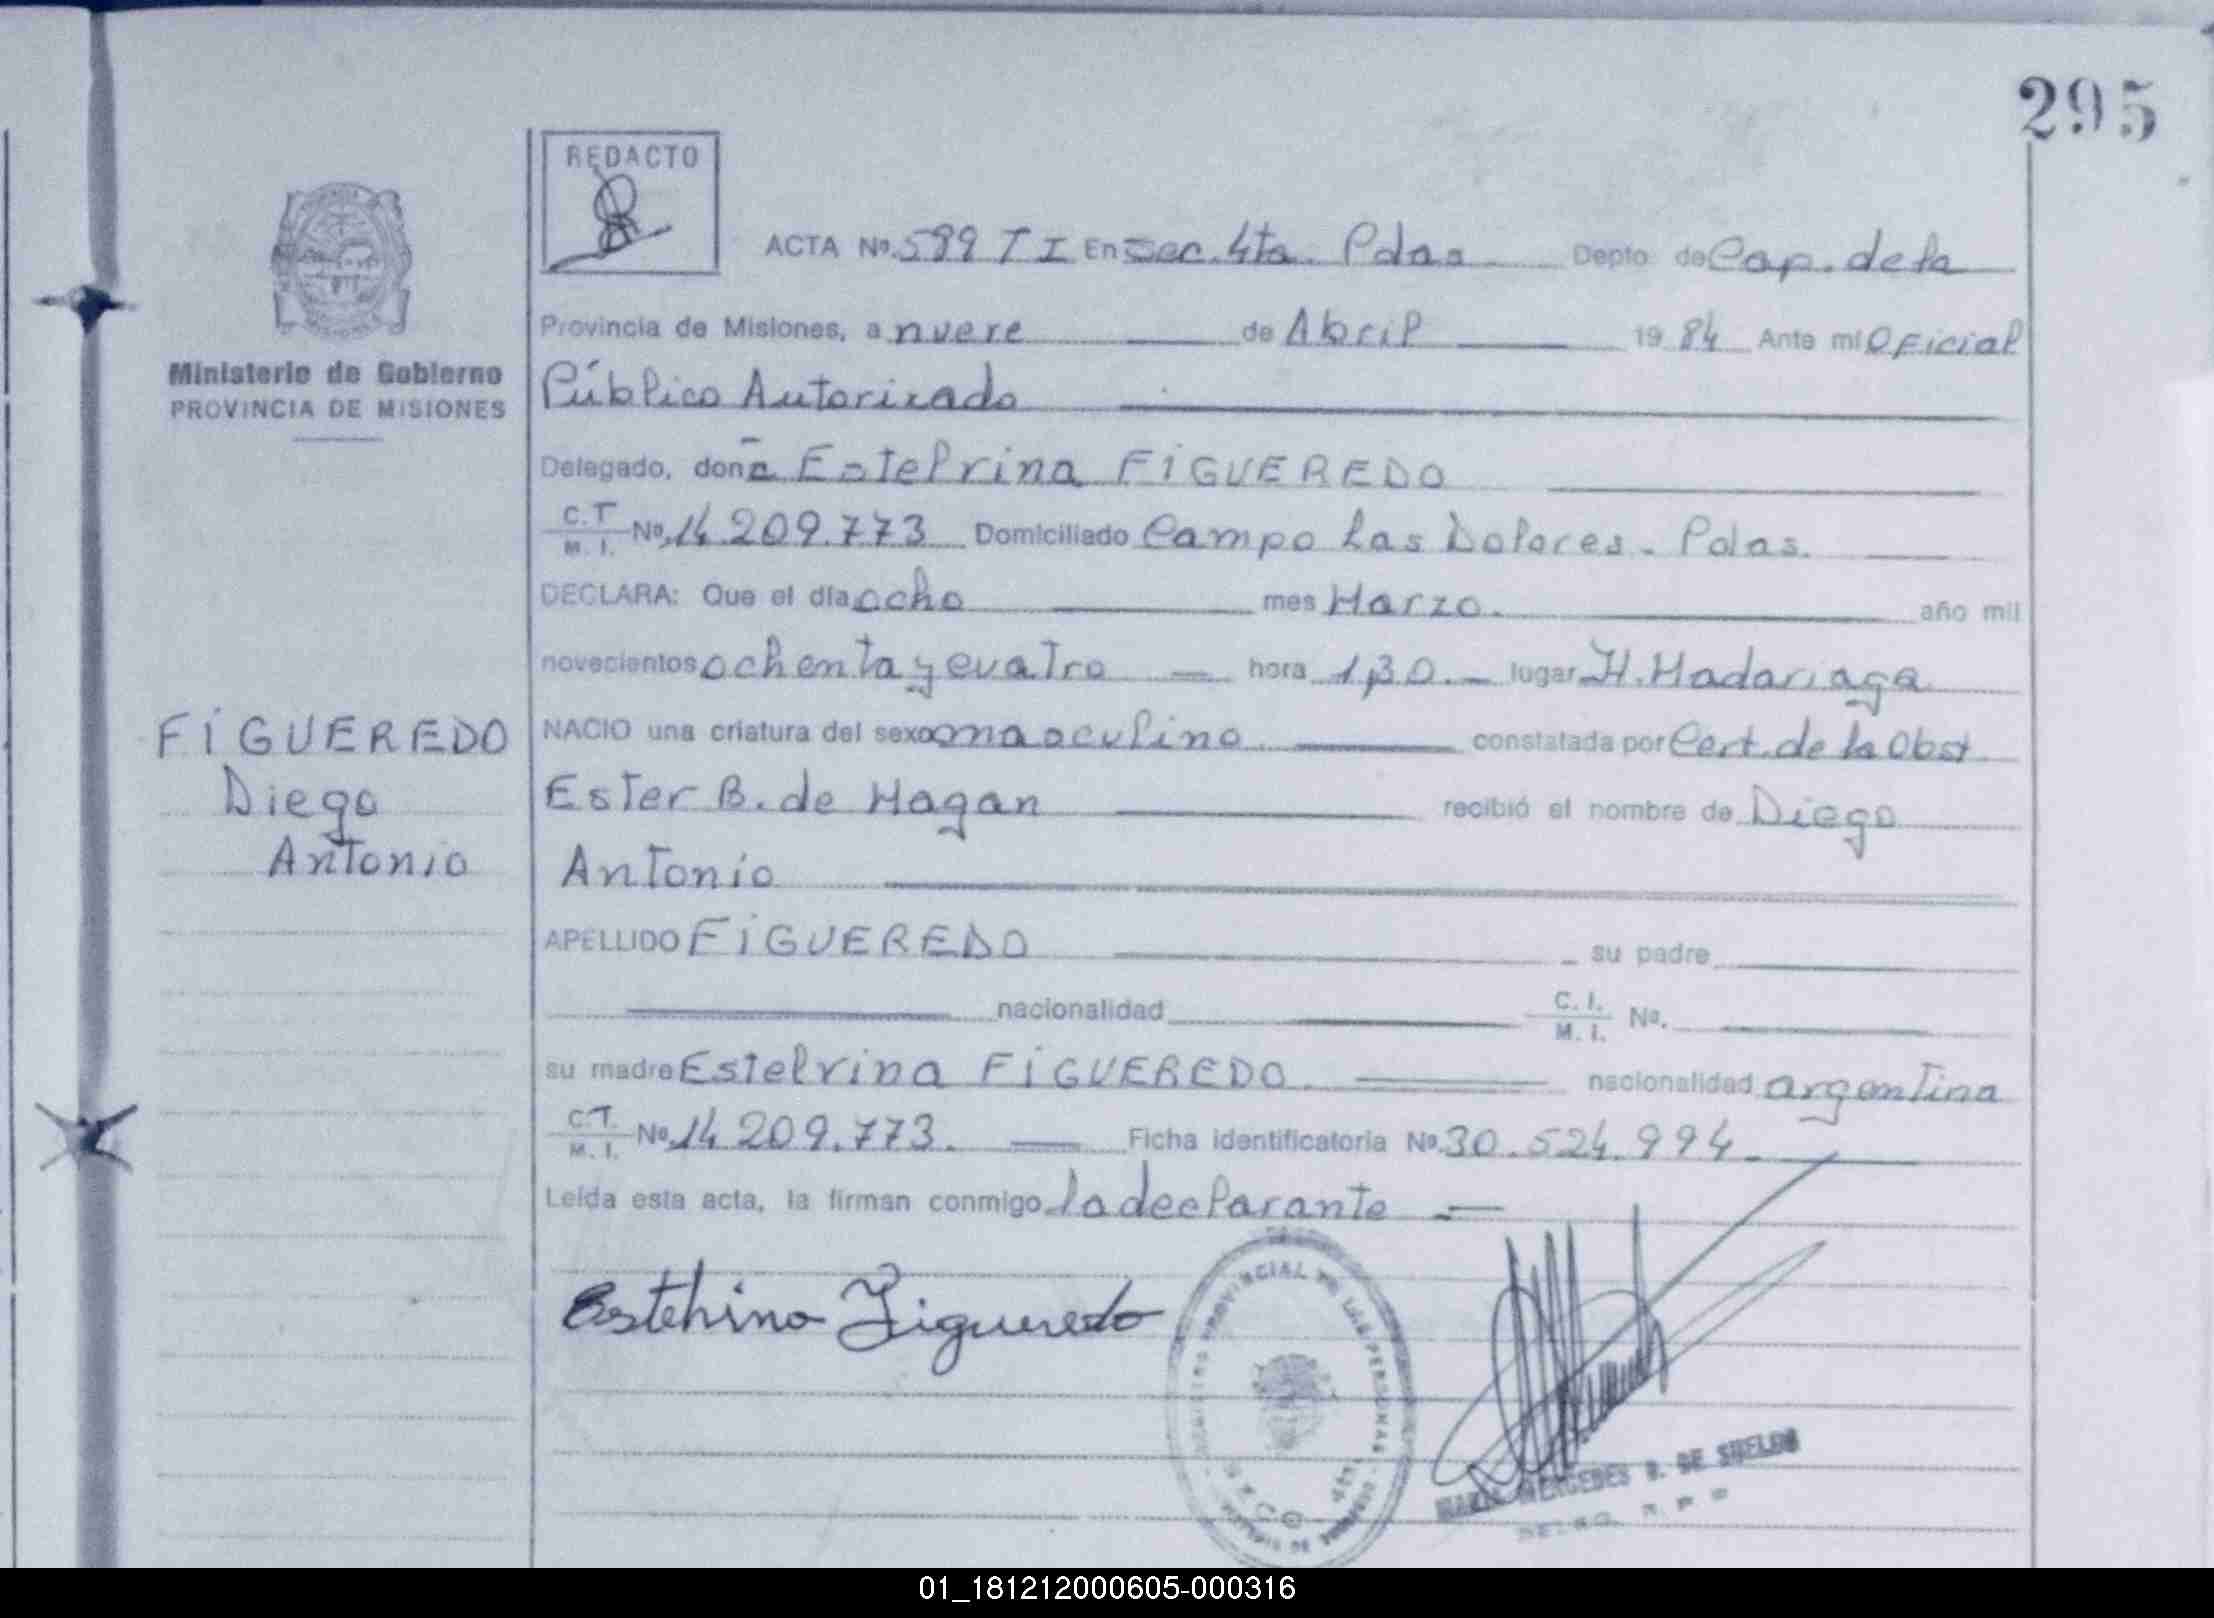 295
REDACTO
ACTA Nº 599 T I En Sec. 4ta. Pdas Depto de Cap. de la
Provincia de Misiones, a nueve de Abril 1984 Ante mi Oficial
Ministerio de Gobierno
PROVINCIA DE MISIONES
Público Autorizado
Delegado, doña Estelvina FIGUEREDO
C.T M. I. Nº 14.209.773 Domiciliado Campo Las Dolores - Pdas.
DECLARA: Que el día ocho mes Marzo. año mil
novecientos ochenta y cuatro hora 1,30. lugar H. Madariaga
FIGUEREDO
Diego
Antonio
NACIO una criatura del sexo masculino constatada por Cert. de la Obst
Ester B. de Hagan recibió el nombre de Diego
Antonio
APELLIDO FIGUEREDO su padre
nacionalidad C. I. M. I. Nº.
su madre Estelvina FIGUEREDO nacionalidad argentina
C.T. M. I. Nº 14.209.773. Ficha identificatoria Nº 30.524.994
Leída esta acta, la firman conmigo la declarante
Estelvina Figueredo
PROVINCIAL DE LAS PERSONAS
MERCEDES B. DE SUELDO
01_181212000605-000316